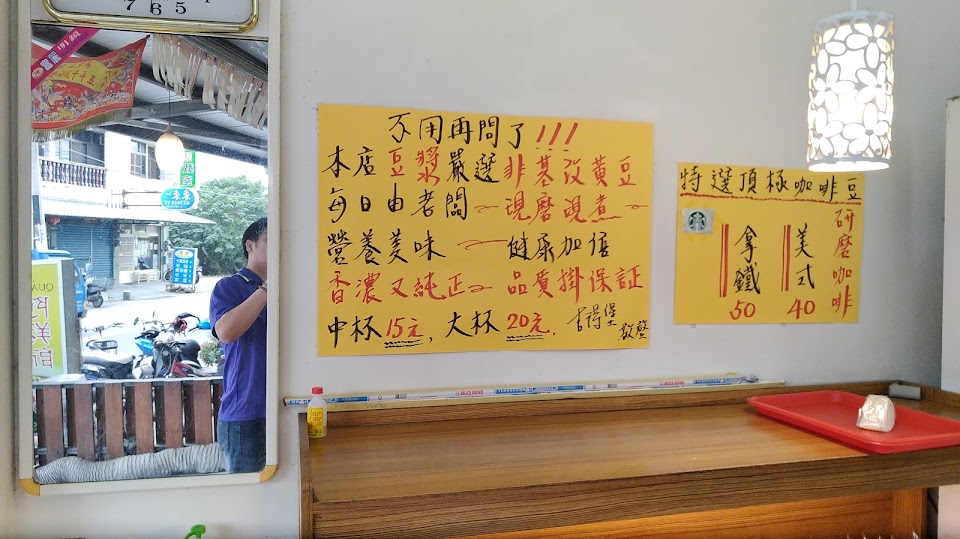 7 6 5
不用再問了!!!
本店豆漿嚴選非基改黃豆
每日由老闆~現磨現煮~
營養美味~健康加倍
香濃又純正~品質掛保証
中杯15元,大杯20元.
敬啓
特選頂極咖啡豆
研磨咖啡
美式
40
拿鐵
50